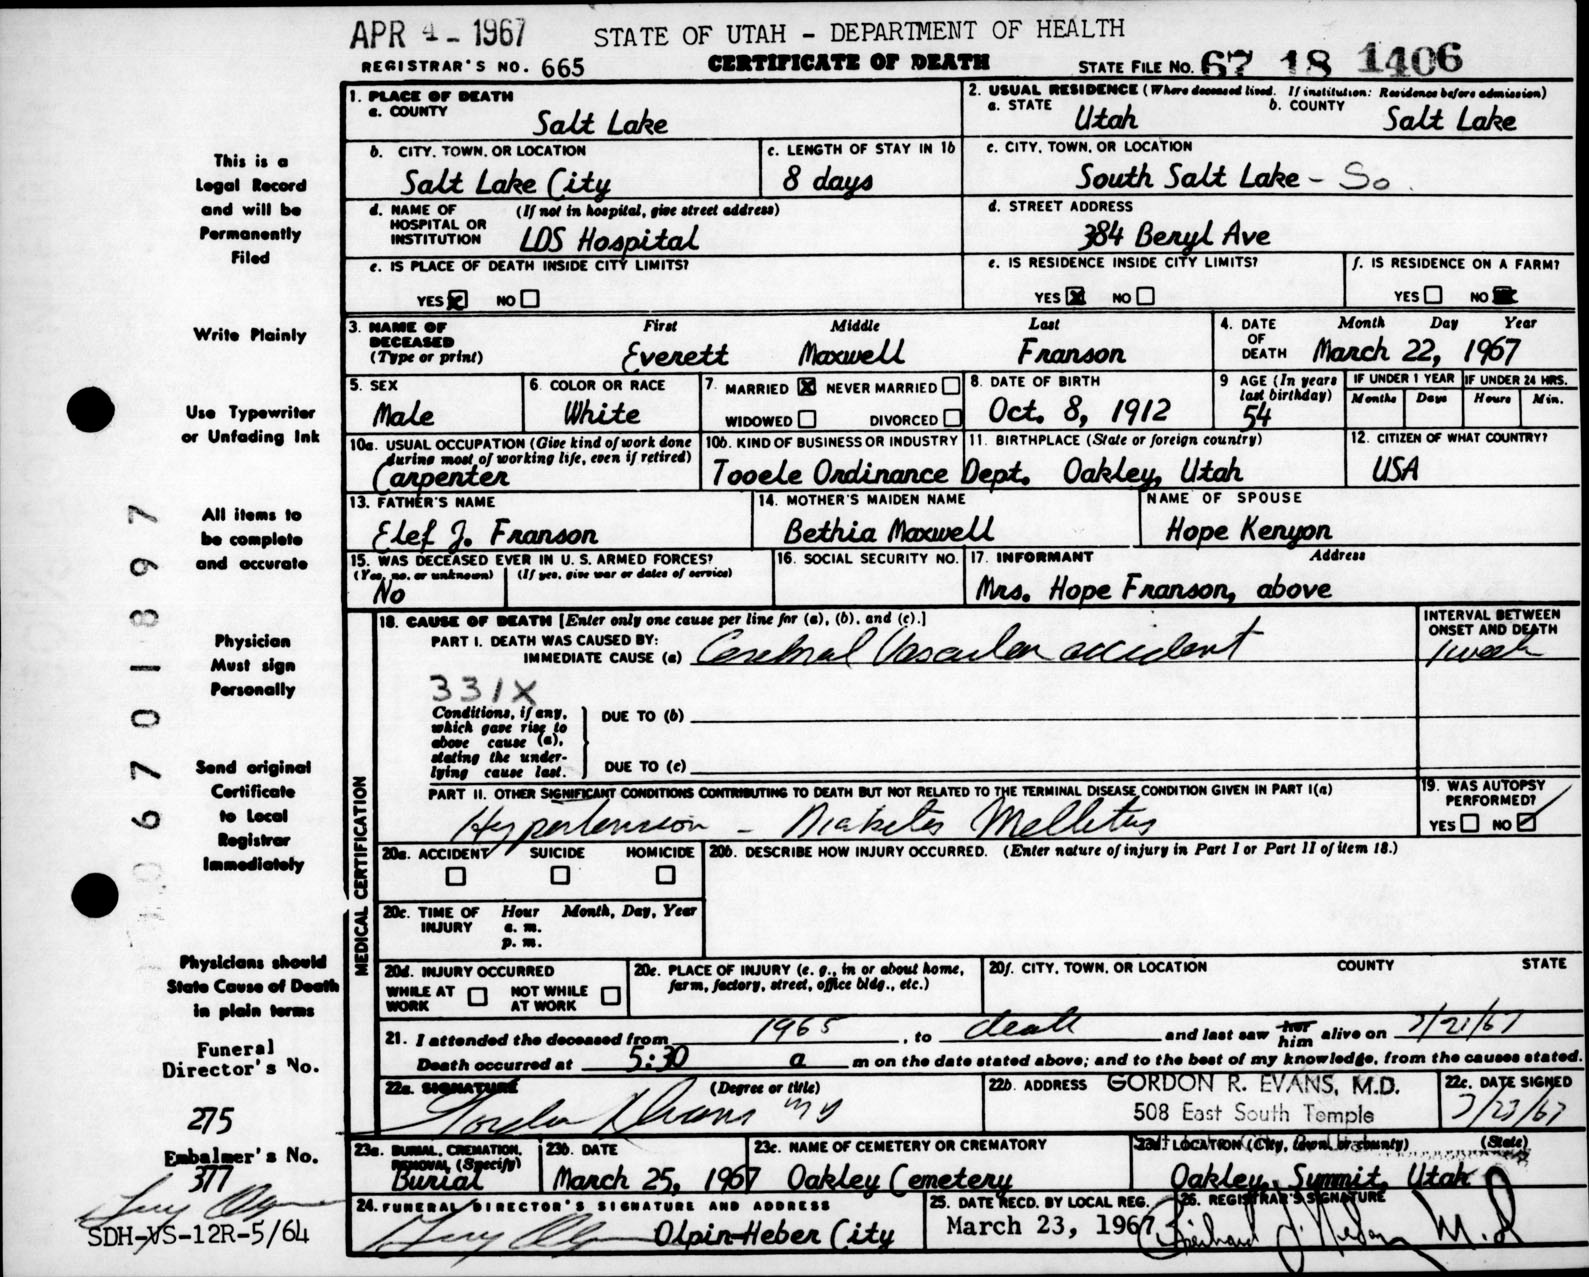 APR 4 - 1967
STATE OF UTAH - DEPARTMENT OF HEALTH
REGISTRAR'S NO. 665
CERTIFICATE OF DEATH
STATE FILE NO. 67 18 1406
1. PLACE OF DEATH
a. COUNTY
Salt Lake
2. USUAL RESIDENCE (Where deceased lived. If institution: Residence before admission)
a. STATE
Utah
b. COUNTY
Salt Lake
b. CITY, TOWN, OR LOCATION
Salt Lake City
c. LENGTH OF STAY IN 1b
8 days
c. CITY, TOWN, OR LOCATION
South Salt Lake - So.
d. NAME OF HOSPITAL OR INSTITUTION
(If not in hospital, give street address)
LDS Hospital
d. STREET ADDRESS
384 Beryl Ave
e. IS PLACE OF DEATH INSIDE CITY LIMITS?
YES NO
e. IS RESIDENCE INSIDE CITY LIMITS?
YES NO
f. IS RESIDENCE ON A FARM?
YES NO
3. NAME OF DECEASED
(Type or print)
First Middle Last
Everett Maxwell Franson
4. DATE OF DEATH
Month Day Year
March 22, 1967
5. SEX
Male
6. COLOR OR RACE
White
7. MARRIED NEVER MARRIED
WIDOWED DIVORCED
8. DATE OF BIRTH
Oct. 8, 1912
9 AGE (In years last birthday)
54
IF UNDER 1 YEAR
Months Days
IF UNDER 24 HRS.
Hours Min.
10a. USUAL OCCUPATION (Give kind of work done
during most of working life, even if retired)
Carpenter
10b. KIND OF BUSINESS OR INDUSTRY
Tooele Ordinance Dept.
11. BIRTHPLACE (State or foreign country)
Oakley, Utah
12. CITIZEN OF WHAT COUNTRY?
USA
13. FATHER'S NAME
Elef J. Franson
14. MOTHER'S MAIDEN NAME
Bethia Maxwell
NAME OF SPOUSE
Hope Kenyon
15. WAS DECEASED EVER IN U. S. ARMED FORCES?
(Yes, no, or unknown) (If yes, give war or dates of service)
No
16. SOCIAL SECURITY NO.
17. INFORMANT Address
Mrs. Hope Franson, above
MEDICAL CERTIFICATION
18. CAUSE OF DEATH [Enter only one cause per line for (a), (b), and (c).]
PART I. DEATH WAS CAUSED BY:
IMMEDIATE CAUSE (a) Cerebral Vascular accident
INTERVAL BETWEEN
ONSET AND DEATH
1 week
331X
Conditions, if any,
which gave rise to
above cause (a),
stating the under-
lying cause last.
DUE TO (b)
DUE TO (c)
PART II. OTHER SIGNIFICANT CONDITIONS CONTRIBUTING TO DEATH BUT NOT RELATED TO THE TERMINAL DISEASE CONDITION GIVEN IN PART I(a)
Hypertension - Diabetes Mellitus
19. WAS AUTOPSY
PERFORMED?
YES NO
20a. ACCIDENT SUICIDE HOMICIDE
20b. DESCRIBE HOW INJURY OCCURRED. (Enter nature of injury in Part I or Part II of item 18.)
20c. TIME OF INJURY
Hour Month, Day, Year
a. m.
p. m.
20d. INJURY OCCURRED
WHILE AT WORK NOT WHILE AT WORK
20e. PLACE OF INJURY (e. g., in or about home,
farm, factory, street, office bldg., etc.)
20f. CITY, TOWN, OR LOCATION COUNTY STATE
21. I attended the deceased from 1965, to death and last saw her him alive on 3/21/67
Death occurred at 5:30 a m on the date stated above; and to the best of my knowledge, from the causes stated.
22a. SIGNATURE (Degree or title)
Gordon R Evans MD
22b. ADDRESS
GORDON R. EVANS, M.D.
508 East South Temple
22c. DATE SIGNED
3/23/67
23a. BURIAL, CREMATION,
REMOVAL (Specify)
Burial
23b. DATE
March 25, 1967
23c. NAME OF CEMETERY OR CREMATORY
Oakley Cemetery
23d. LOCATION (City, town, or county) (State)
Oakley, Summit, Utah
24. FUNERAL DIRECTOR'S SIGNATURE AND ADDRESS
Olpin-Heber City
25. DATE RECD. BY LOCAL REG.
March 23, 1967
26. REGISTRAR'S SIGNATURE
M.D.
This is a
Legal Record
and will be
Permanently
Filed
Write Plainly
Use Typewriter
or Unfading Ink
All items to
be complete
and accurate
Physician
Must sign
Personally
Send original
Certificate
to Local
Registrar
Immediately
Physicians should
State Cause of Death
in plain terms
Funeral
Director's No.
275
Embalmer's No.
377
SDH-VS-12R-5/64
0 6 7 0 1 8 9 7